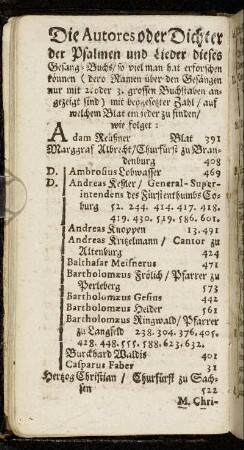 Die Autores oder Dichter
der Psalmen und Lieder dieses
Gesang-Buchs/ so viel man hat erforschen
können (dero Namen über den Gesängen
nur mit 2. oder 3. grossen Buchstaben an-
gezeigt sind) mit beygesetzter Zahl/ auf
welchem Blat ein jeder zu finden/
wie folget:
Adam Reußner Blat 391
Marggraf Albrecht/ Churfürst zu Bran-
denburg 408
D. Ambrosius Lobwasser 469
D. Andreas Keßler/ General-Super-
intendens des Fürstenthumbs Co-
burg 52. 244. 414. 417. 418.
419. 430. 519. 586. 601.
Andreas Knoppen 13. 491
Andreas Kritzelmann/ Cantor zu
Altenburg 424
Balthasar Meisnerus 471
Bartholomæus Frölich/ Pfarrer zu
Perleberg 573
Bartholomæus Gesius 442
Bartholomæus Helder 561
Bartholomæus Ringwald/ Pfarrer
zu Langfeld 238. 304. 376. 405.
428. 448. 555. 588. 623. 632.
Burckhard Waldis 401
Casparus Faber 31
Hertzog Christian/ Churfürst zu Sach-
sen 522
M. Chri-